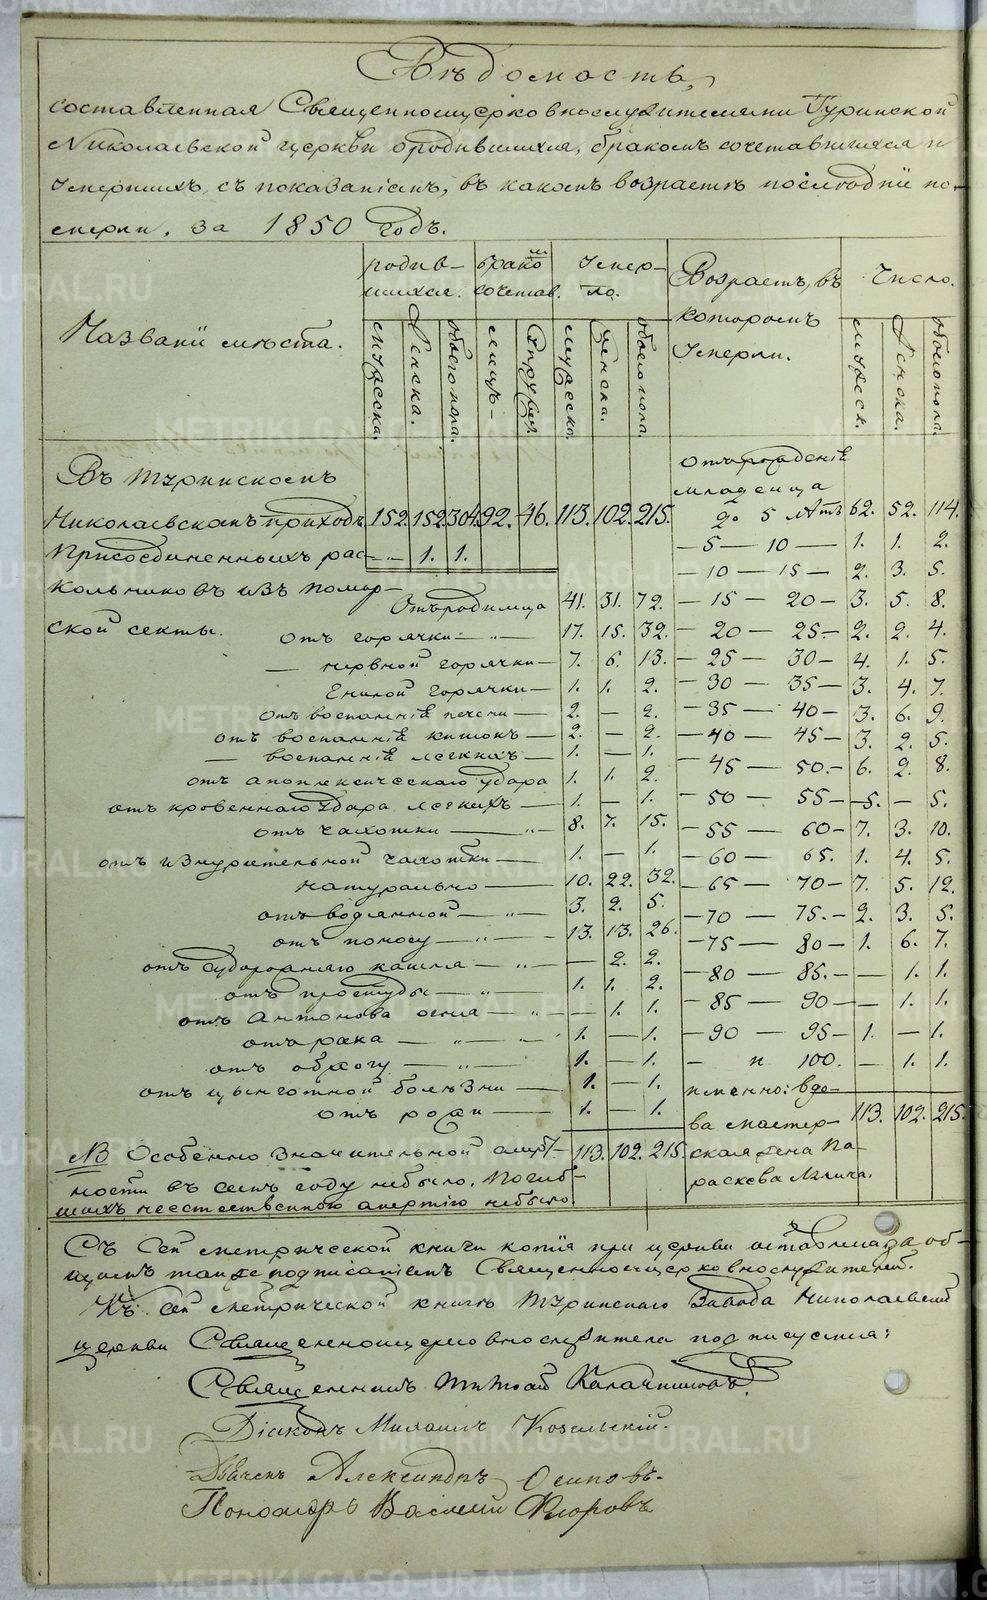 Вѣдомость,
составленная Священноцерковнослужителями Туринской
Николаевской церкви о родившихся, бракомъ сочетавшихся и
умершихъ, съ показаніемъ, въ какомъ возрастѣ последніи по-
мерли. за 1850 годъ.
Названіи мѣста.
родив-
шихся.
брако
сочетав.
Умер-
ло.
Возрастъ, въ
которомъ
Умерли.
Число.
мужеска.
женска.
обоего пола.
лицъ
супруж.
мужеска.
женска.
обоего пола.
мужеск.
женска.
обоего пола.
Въ Туринскомъ
Николаевскомъ приходѣ 152. 152. 304. 92. 46. 113. 102. 215.
Присоединенныхъ рас- — " — 1. 1.
кольниковъ изъ помор-
ской секты.
Отъ родимца 41. 31. 72.
отъ горячки — " — 17. 15. 32.
— нервной горячки — 7. 6. 13.
Гнилой горячки — 1. 1. 2.
отъ воспаленій печени — 2. — 2.
отъ воспаленій кишокъ — 2. — 2.
— воспаленій легкихъ — 1. — 1.
отъ апоплексическаго удара 1. 1. 2.
отъ кровеннаго удара легкихъ — 1. — 1.
отъ чахотки — " — 8. 7. 15.
отъ изнурительной чахотки — 1. — 1.
натурально — 10. 22. 32.
отъ водянной — " — 3. 2. 5.
отъ поносу — " — 13. 13. 26.
отъ судорожнаго кашля — " — — 2. 2.
отъ простуды — " — 1. 1. 2.
отъ Антонова огня — " — — 1. 1.
отъ рака — " — 1. — 1.
отъ обжогу — " — 1. — 1.
отъ цынготной болѣзни — 1. — 1.
отъ рожи — 1. — 1.
113. 102. 215.
Отъ рожденій
младенца
до 5 лѣтъ 62. 52. 114.
— 5 — 10 — 1. 1. 2.
— 10 — 15 — 2. 3. 5.
— 15 — 20 — 3. 5. 8.
— 20 — 25. — 2. 2. 4.
— 25 — 30 — 4. 1. 5.
— 30 — 35 — 3. 4. 7.
— 35 — 40 — 3. 6. 9.
— 40 — 45 — 3. 2. 5.
— 45 — 50. — 6. 2. 8.
— 50 — 55 — 5. — 5.
— 55 — 60 — 7. 3. 10.
— 60 — 65. 1. 4. 5.
— 65 — 70 — 7. 5. 12.
— 70 — 75. — 2. 3. 5.
— 75 — 80 — 1. 6. 7.
— 80 — 85. — — 1. 1.
— 85 — 90 — — 1. 1.
— 90 — 95 — 1. — 1.
— и 100. — 1. 1.
именно: вдо-
ва мастер-
ская жена Па-
раскева
113. 102. 215.
NB Особенно значительной смерт-
ности въ семъ году небыло. Погиб-
шихъ неестественною смертію небыло.
Съ Сей метрической книги копія при церкви оставлена за об-
щимъ также подписаніемъ Священноцерковнослужителей.
Къ Сей метрической книгѣ Туринскаго Завода Николаевской
церкви Священноцерковнослужители подписуемся:
Священникъ Тимофей Калачниковъ.
Діаконъ Михаилъ Козельскій.
Дьячекъ Александръ Осиповъ.
Пономарь Василій Флоровъ
METRIKI.GASO-URAL.RU